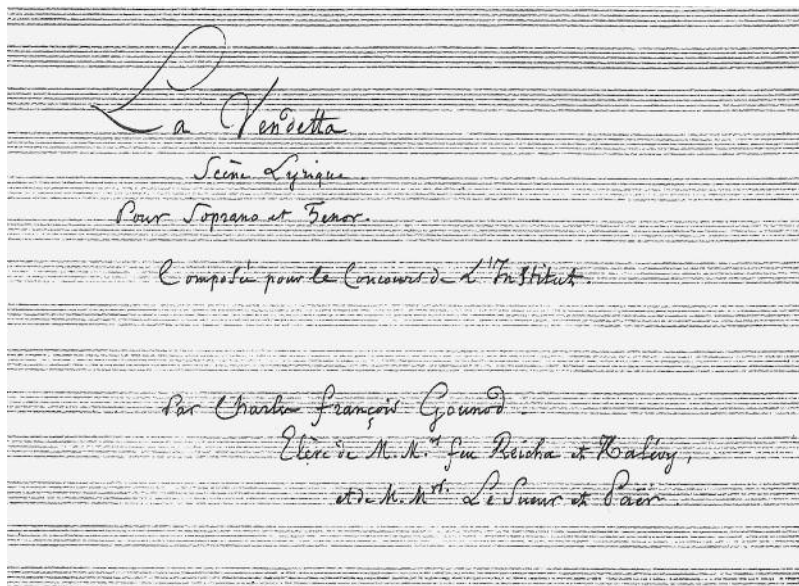 La Vendetta
Scène Lyrique.
Pour Soprano et Tenor.
Composée pour le Concours de L'Institut.
Par Charles François Gounod.
Elève de M. M.rs feu Reicha et Halévy,
et de M. Mrs. Le Sueur et Paër.